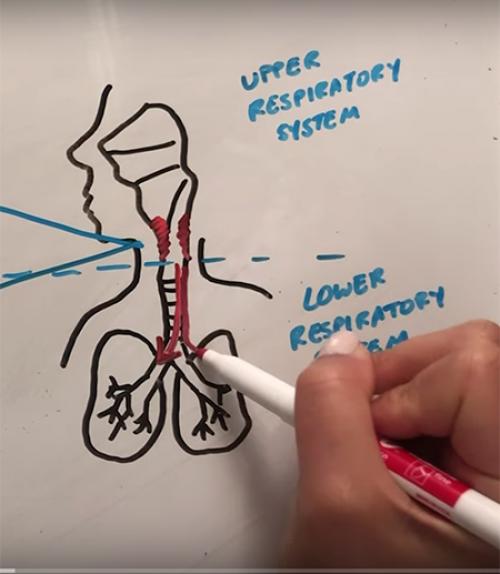 UPPER
RESPIRATORY
SYSTEM
LOWER
RESPIRATORY